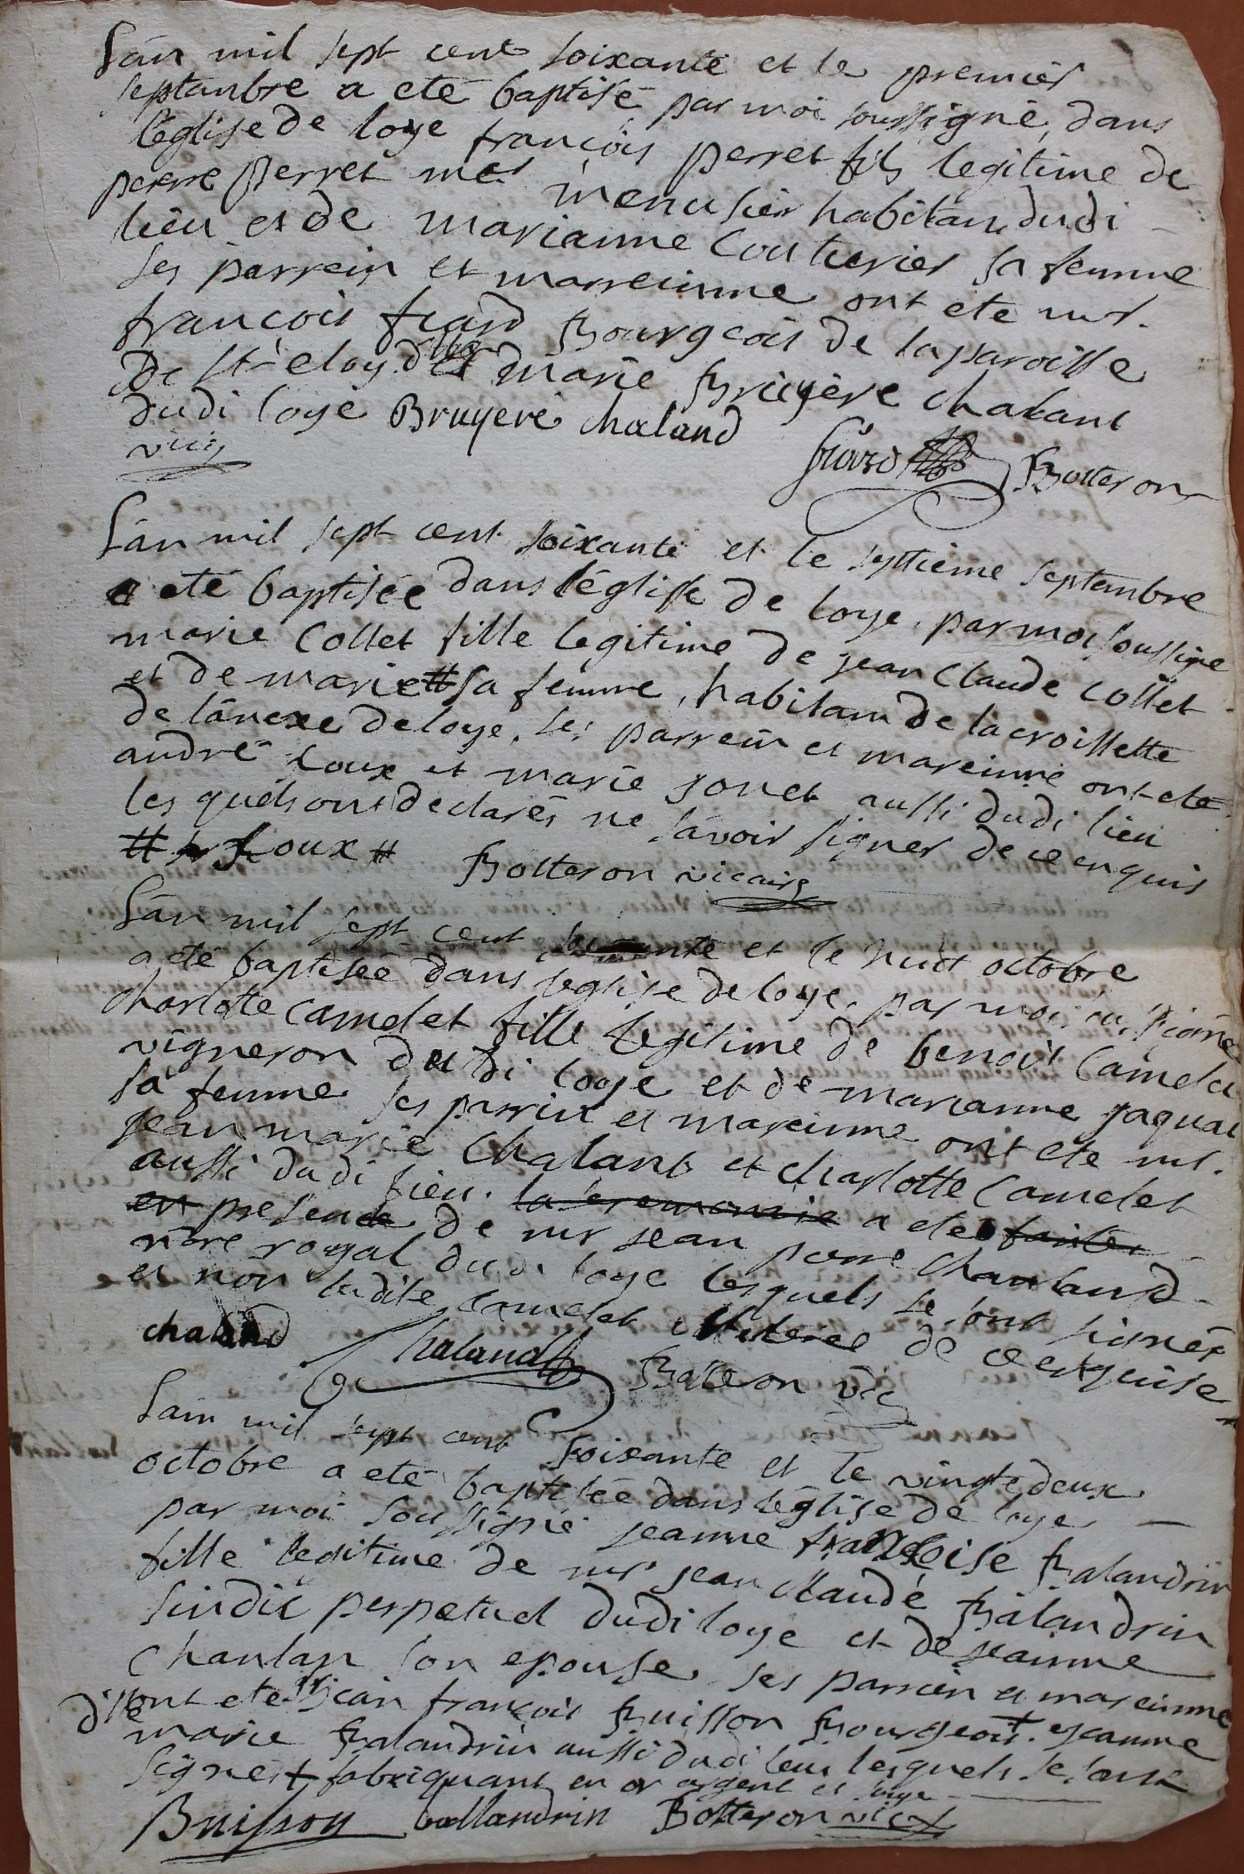 Lan mil sept cent soixante et le premier
septambre a eté baptisé par moi soussigné, dans
l'église de loye françois perret fils legitime de
pierre perret me menusier habitant dudi
lieu et de marianne couturier sa femme
ses parrein et marreinne ont ete mr.
françois fiard Bourgeois de la paroisse
De st eloy. dlle marie Bruyère chalant
dudi loye Bruyere chaland
vic fiard Botteron
Lan mil sept cent soixante et le septieme septembre
a eté baptisée dans l'église de loye par moi soussigné
marie Collet fille legitime de jean Claude Collet
et de marie # sa femme, habitans de la croissette
de l'anexe de loye. ses parrein et mareinne ont ete
andré Roux et marie jonet aussi dudi lieu
les quels ont declarés ne savoir signer de ce enquis
# Roux # Botteron vicaire
Lan mil sept cent soixante et le huit octobre
a eté baptisée dans l'eglise de loye. par moi soussigné
charlote Camelet fille legitime de benoit Camelet
vigneron du di loye et de marianne jaquai
sa femme ses parrin et mareinne ont ete mr.
jean marie Chalant et charlotte Camelet
aussi dudi lieu. la ceremonie a ete faite
en presence de mr jean pierre Chaland
nore royal dudi loye lesquels se sont signés
et non ladite camelet illiterée de ce enquise
chaland Chaland Botteron vic
Lan mil sept cent soixante et le vingtedeux
octobre a eté baptisée dans l'église de loye
par moi soussigné jeanne françoise Balandrin
fille legitime de mr jean claude Balandrin
sindic perpetuel dudi loye et de jeanne
Chanlan son epouse ses parrein et mareinne
ont ete jean françois Buisson Bourgeois + et jeanne
dlle marie Balandrin aussi dudi lieu lesquels se sont
signés + fabriquant en or argent et soye
Buisson ballandrin Botteron vic